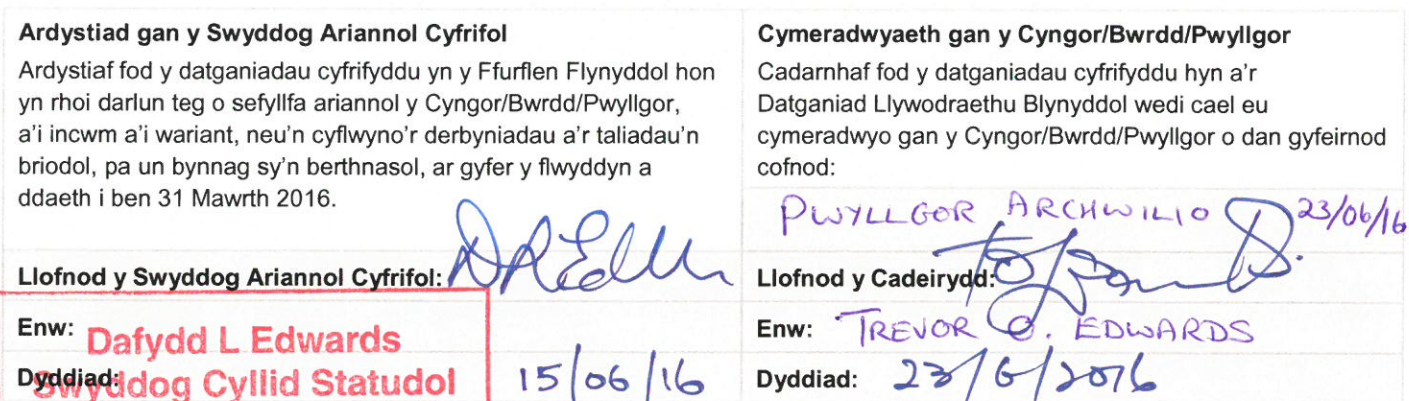 Ardystiad gan y Swyddog Ariannol Cyfrifol
Ardystiaf fod y datganiadau cyfrifyddu yn y Ffurflen Flynyddol hon
yn rhoi darlun teg o sefyllfa ariannol y Cyngor/Bwrdd/Pwyllgor,
a'i incwm a'i wariant, neu'n cyflwyno'r derbyniadau a'r taliadau'n
briodol, pa un bynnag sy'n berthnasol, ar gyfer y flwyddyn a
ddaeth i ben 31 Mawrth 2016.
Llofnod y Swyddog Ariannol Cyfrifol:
Enw: Dafydd L Edwards
Swyddog Cyllid Statudol
Dyddiad: 15/06/16
Cymeradwyaeth gan y Cyngor/Bwrdd/Pwyllgor
Cadarnhaf fod y datganiadau cyfrifyddu hyn a'r
Datganiad Llywodraethu Blynyddol wedi cael eu
cymeradwyo gan y Cyngor/Bwrdd/Pwyllgor o dan gyfeirnod
cofnod:
PWYLLGOR ARCHWILIO 23/06/16
Llofnod y Cadeirydd:
Enw: TREVOR O. EDWARDS
Dyddiad: 23/6/2016